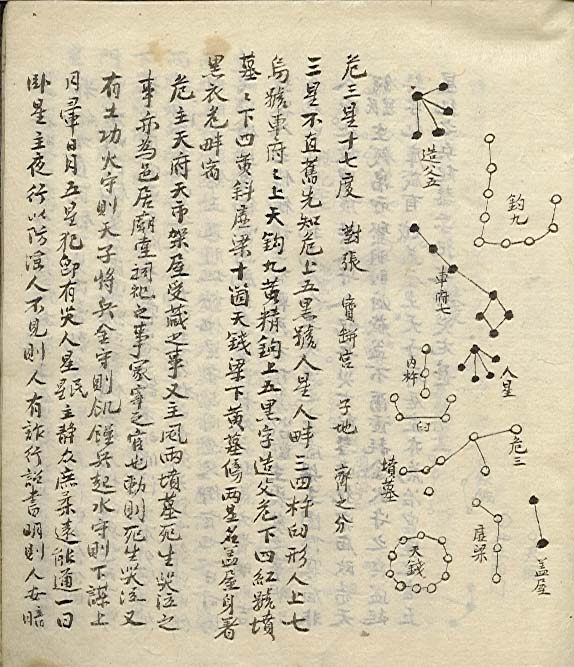 造父五
鈎九
車府七
人星
內杵
臼
危三
墳墓
虛梁
盖屋
天錢
危三星十七度 對張 寳缾宮 子地 齊之分
三星不直舊先知危上五黒號人星人畔三四杵臼形人上七
烏號車府〻上天鈎九黄精鈎上五黒字造父危下四紅號墳
墓〻下四黄斜虛梁十箇天錢梁下黄墓傍兩星名盖屋身著
黒衣危畔宿
危主天府天市架屋受藏之事又主風雨墳墓死生哭泣之
事亦為邑居廟堂祠祀之事冢宰之官也動則死生哭泣又
有土功火守則天子將兵金守則飢饉兵起水守則下謀上
月暈日月五星犯即有哭人星民星主静衆庶柔遠能通一曰
卧星主夜行以防淫人不見則人有詐行詔書明則人安暗